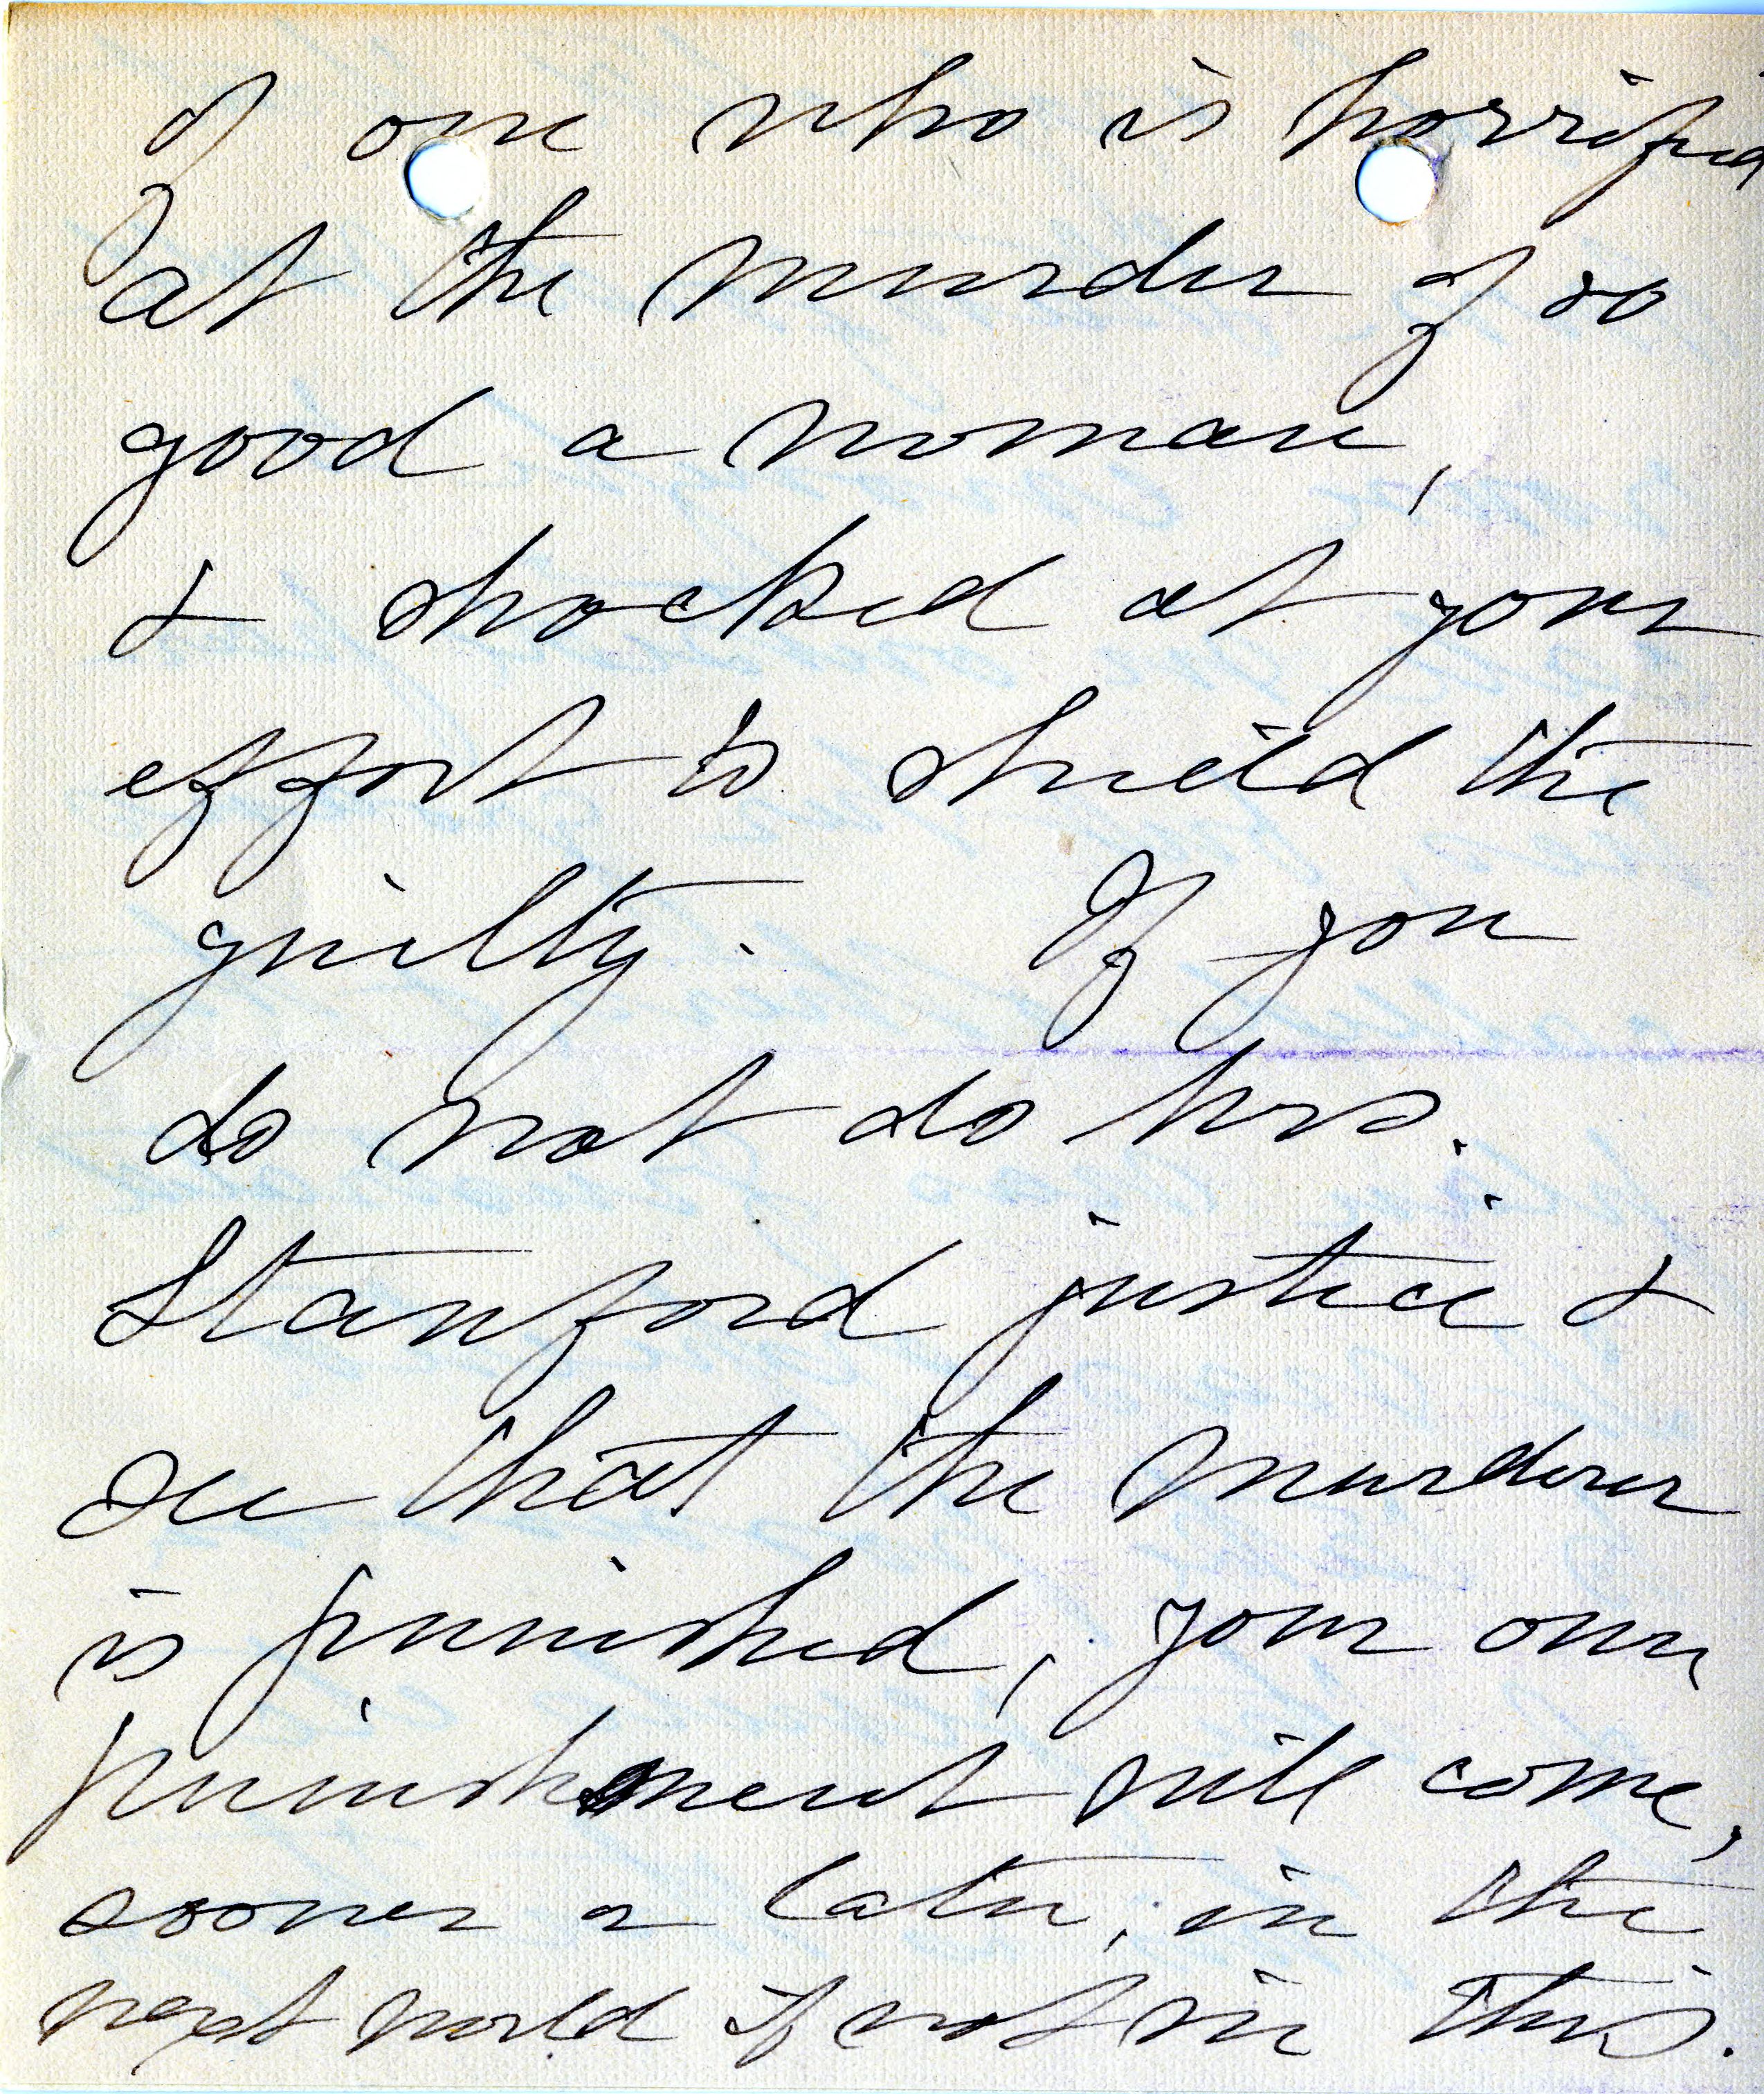 of one who is horrified
at the murder of so
good a woman,
& shocked at your
effort to shield the
guilty. If you
do not do Mrs.
Stanford justice &
see that the murderer
is punished, your own
punishment will come,
sooner or later, in the
next world if not in this.